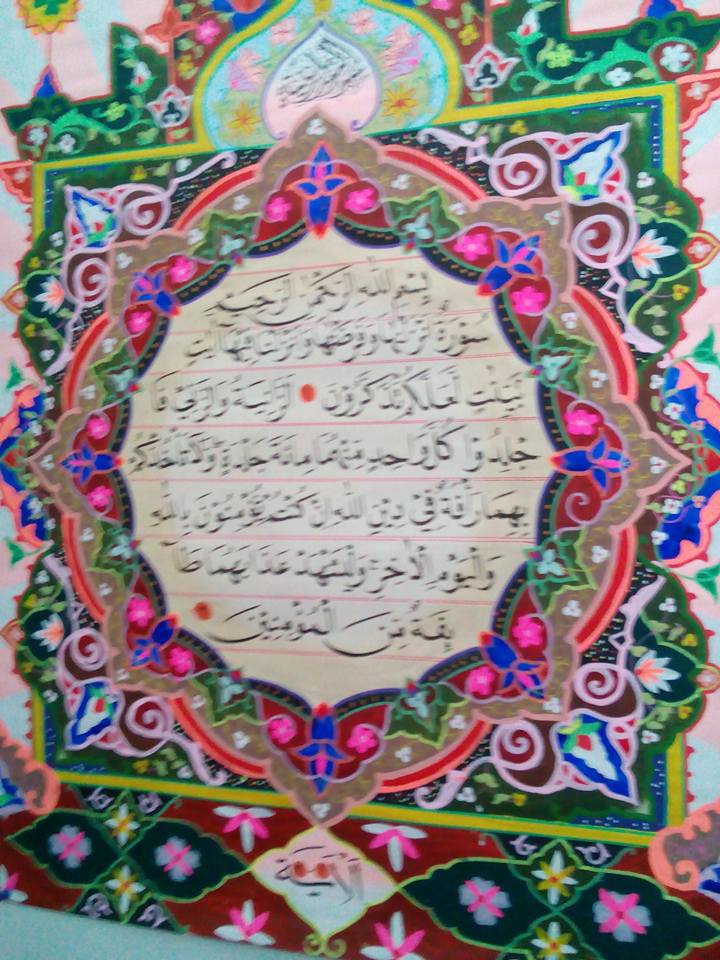 بِسْمِ اللهِ الرَّحْمٰنِ الرَّحِيْمِ
سُوْرَةٌ اَنْزَلْنٰهَا وَفَرَضْنٰهَا وَاَنْزَلْنَا فِيْهَآ اٰيٰتٍ
بَيِّنٰتٍ لَعَلَّكُمْ تَذَكَّرُوْنَ اَلزَّانِيَةُ وَالزَّانِيْ فَا
جْلِدُوْا كُلَّ وَاحِدٍ مِنْهُمَا مِائَةَ جَلْدَةٍ وَّلَا تَأْخُذْكُمْ
بِهِمَا رَأْفَةٌ فِيْ دِيْنِ اللهِ اِنْ كُنْتُمْ تُؤْمِنُوْنَ بِاللهِ
وَالْيَوْمِ الْاٰخِرِ وَلْيَشْهَدْ عَذَابَهُمَا طَا
ئِفَةٌ مِّنَ الْمُؤْمِنِيْنَ
الاٰية